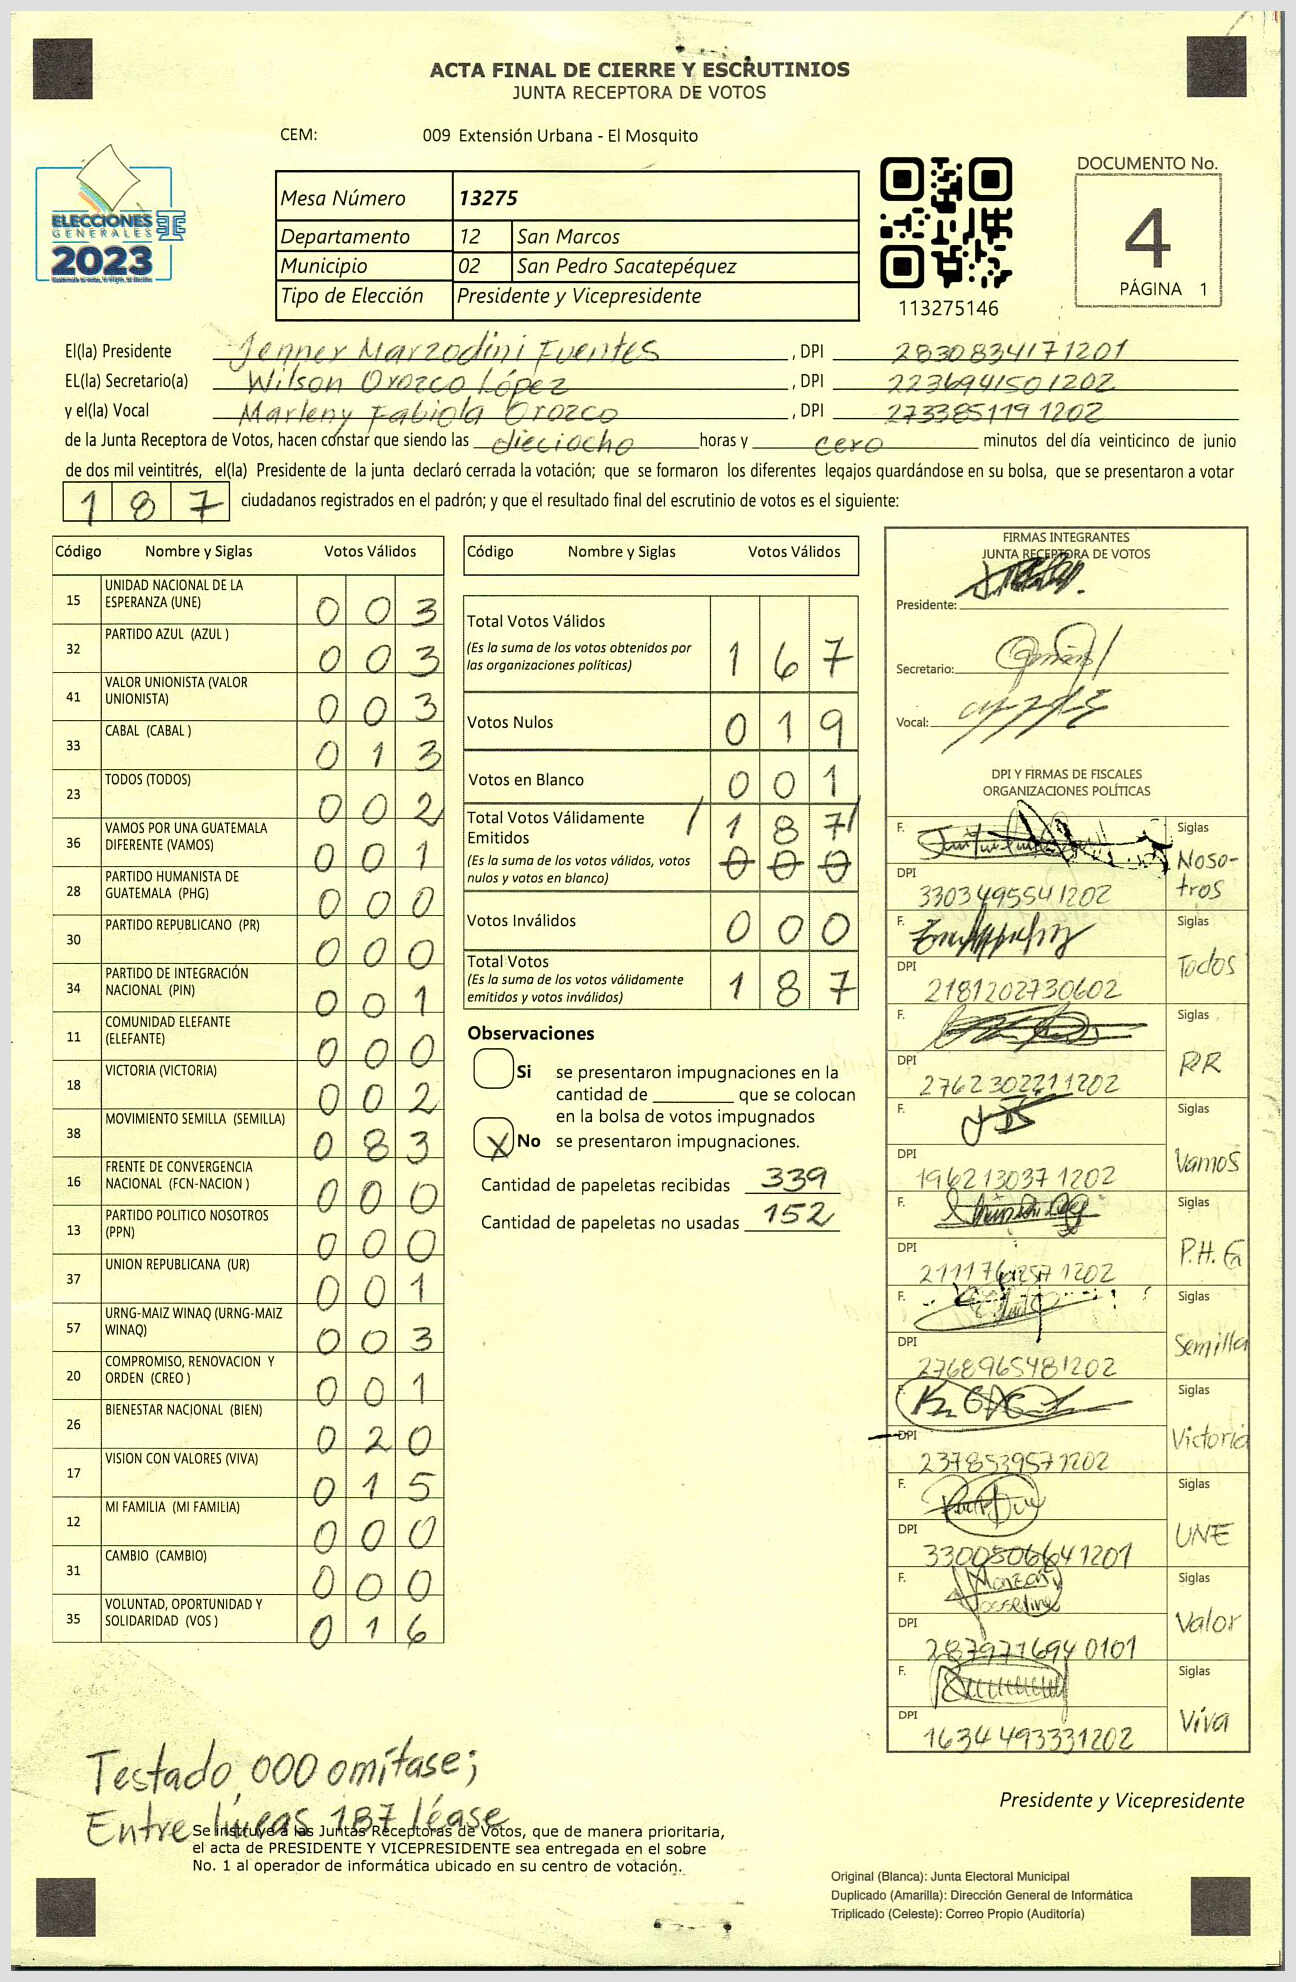 ACTA FINAL DE CIERRE Y ESCRUTINIOS
JUNTA RECEPTORA DE VOTOS
CEM: 009 Extensión Urbana - El Mosquito
ELECCIONES
GENERALES
2023
Mesa Número 13275
Departamento 12 San Marcos
Municipio 02 San Pedro Sacatepéquez
Tipo de Elección Presidente y Vicepresidente
113275146
DOCUMENTO No.
4
PÁGINA 1
El(la) Presidente Jenner Marzodini Fuentes , DPI 2830834171201
EL(la) Secretario(a) Wilson Orozco López , DPI 2236941501202
y el(la) Vocal Marleny Fabiola Orozco , DPI 2733851191202
de la Junta Receptora de Votos, hacen constar que siendo las dieciocho horas y cero minutos del día veinticinco de junio
de dos mil veintitrés, el(la) Presidente de la junta declaró cerrada la votación; que se formaron los diferentes legajos guardándose en su bolsa, que se presentaron a votar
187 ciudadanos registrados en el padrón; y que el resultado final del escrutinio de votos es el siguiente:
Código Nombre y Siglas Votos Válidos
15 UNIDAD NACIONAL DE LA
ESPERANZA (UNE) 003
32 PARTIDO AZUL (AZUL ) 003
41 VALOR UNIONISTA (VALOR
UNIONISTA) 003
33 CABAL (CABAL ) 013
23 TODOS (TODOS) 002
36 VAMOS POR UNA GUATEMALA
DIFERENTE (VAMOS) 001
28 PARTIDO HUMANISTA DE
GUATEMALA (PHG) 000
30 PARTIDO REPUBLICANO (PR) 000
34 PARTIDO DE INTEGRACIÓN
NACIONAL (PIN) 001
11 COMUNIDAD ELEFANTE
(ELEFANTE) 000
18 VICTORIA (VICTORIA) 002
38 MOVIMIENTO SEMILLA (SEMILLA) 083
16 FRENTE DE CONVERGENCIA
NACIONAL (FCN-NACION ) 000
13 PARTIDO POLITICO NOSOTROS
(PPN) 000
37 UNION REPUBLICANA (UR) 001
57 URNG-MAIZ WINAQ (URNG-MAIZ
WINAQ) 003
20 COMPROMISO, RENOVACION Y
ORDEN (CREO ) 001
26 BIENESTAR NACIONAL (BIEN) 020
17 VISION CON VALORES (VIVA) 015
12 MI FAMILIA (MI FAMILIA) 000
31 CAMBIO (CAMBIO) 000
35 VOLUNTAD, OPORTUNIDAD Y
SOLIDARIDAD (VOS ) 016
Código Nombre y Siglas Votos Válidos
Total Votos Válidos
(Es la suma de los votos obtenidos por
las organizaciones políticas) 167
Votos Nulos 019
Votos en Blanco 001
Total Votos Válidamente
Emitidos / 187 /
(Es la suma de los votos válidos, votos
nulos y votos en blanco) 000
Votos Inválidos 000
Total Votos
(Es la suma de los votos válidamente
emitidos y votos inválidos) 187
Observaciones
Si se presentaron impugnaciones en la
cantidad de ________ que se colocan
en la bolsa de votos impugnados
X No se presentaron impugnaciones.
Cantidad de papeletas recibidas 339
Cantidad de papeletas no usadas 152
FIRMAS INTEGRANTES
JUNTA RECEPTORA DE VOTOS
Presidente:
Secretario:
Vocal:
DPI Y FIRMAS DE FISCALES
ORGANIZACIONES POLÍTICAS
F. Siglas
Noso-
tros
DPI 3303495541202
F. Siglas
Todos
DPI 2181202730602
F. Siglas
PR
DPI 2762302211202
F. Siglas
Vamos
DPI 1962130371202
F. Siglas
P.H.G
DPI
F. Siglas
Semilla
DPI 2768965481202
F. Siglas
Victoria
DPI 2378539571202
F. Siglas
UNE
DPI 3300806641201
F. Manzan
Josseline
Siglas
Valor
DPI 2879716940101
F. Siglas
Viva
DPI 1634493331202
Testado 000 omítase;
Entre líneas 187 léase
Se instruye a las Juntas Receptoras de Votos, que de manera prioritaria,
el acta de PRESIDENTE Y VICEPRESIDENTE sea entregada en el sobre
No. 1 al operador de informática ubicado en su centro de votación.
Presidente y Vicepresidente
Original (Blanca): Junta Electoral Municipal
Duplicado (Amarilla): Dirección General de Informática
Triplicado (Celeste): Correo Propio (Auditoría)